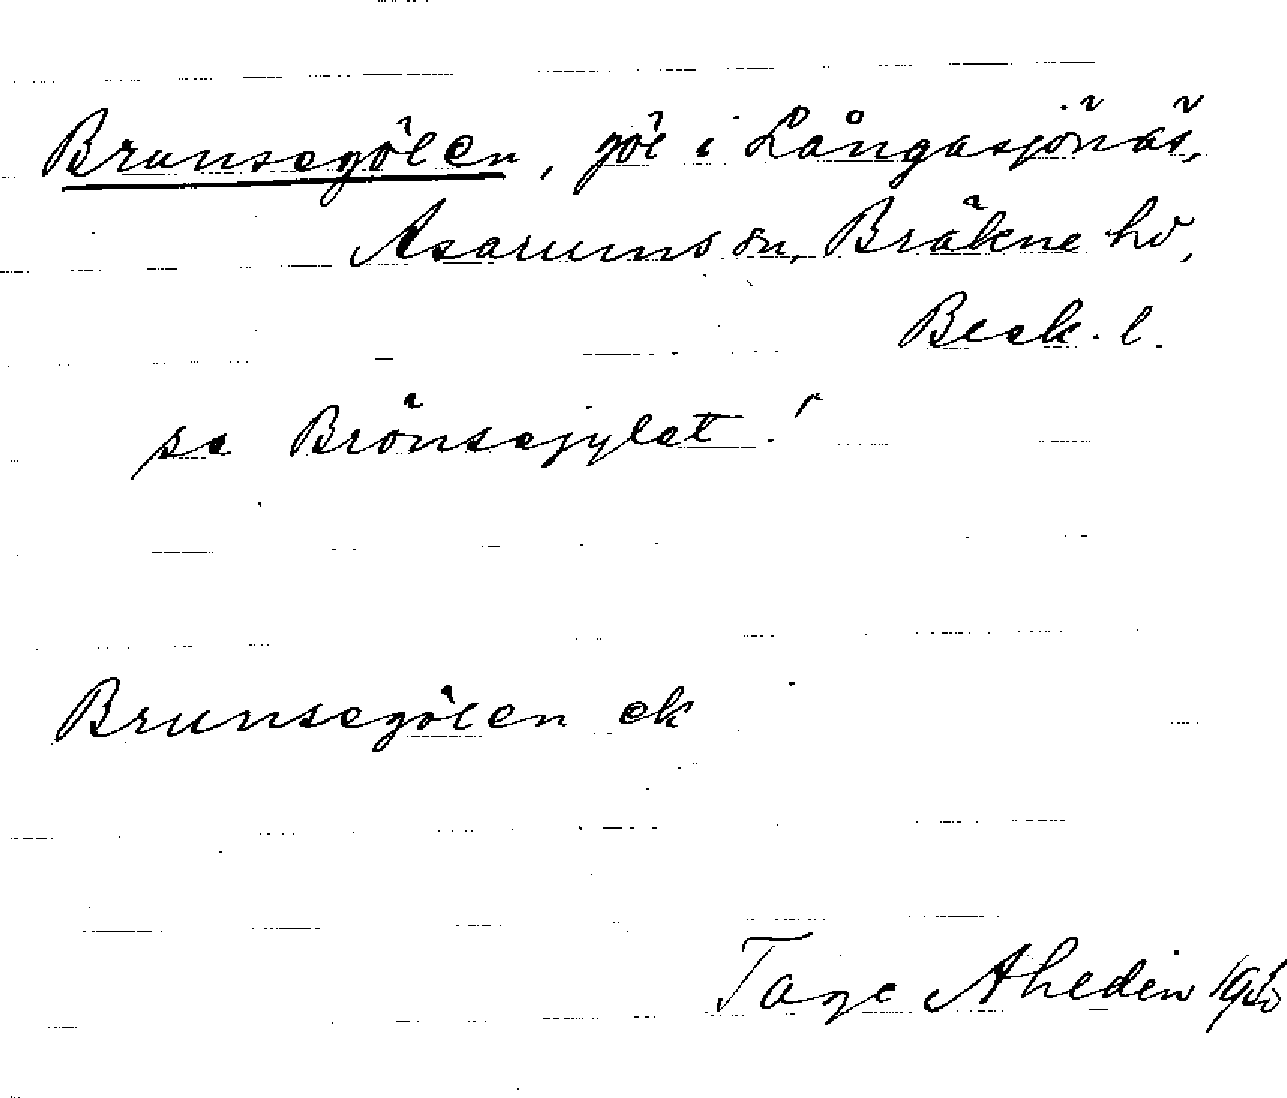 Brunsegölen, göl i Långasjönäs,
Asarums sn, Bräkne hd,
Blek. l.
se Brönsejylet!
Brunsegölen ek
Tage Ahedin